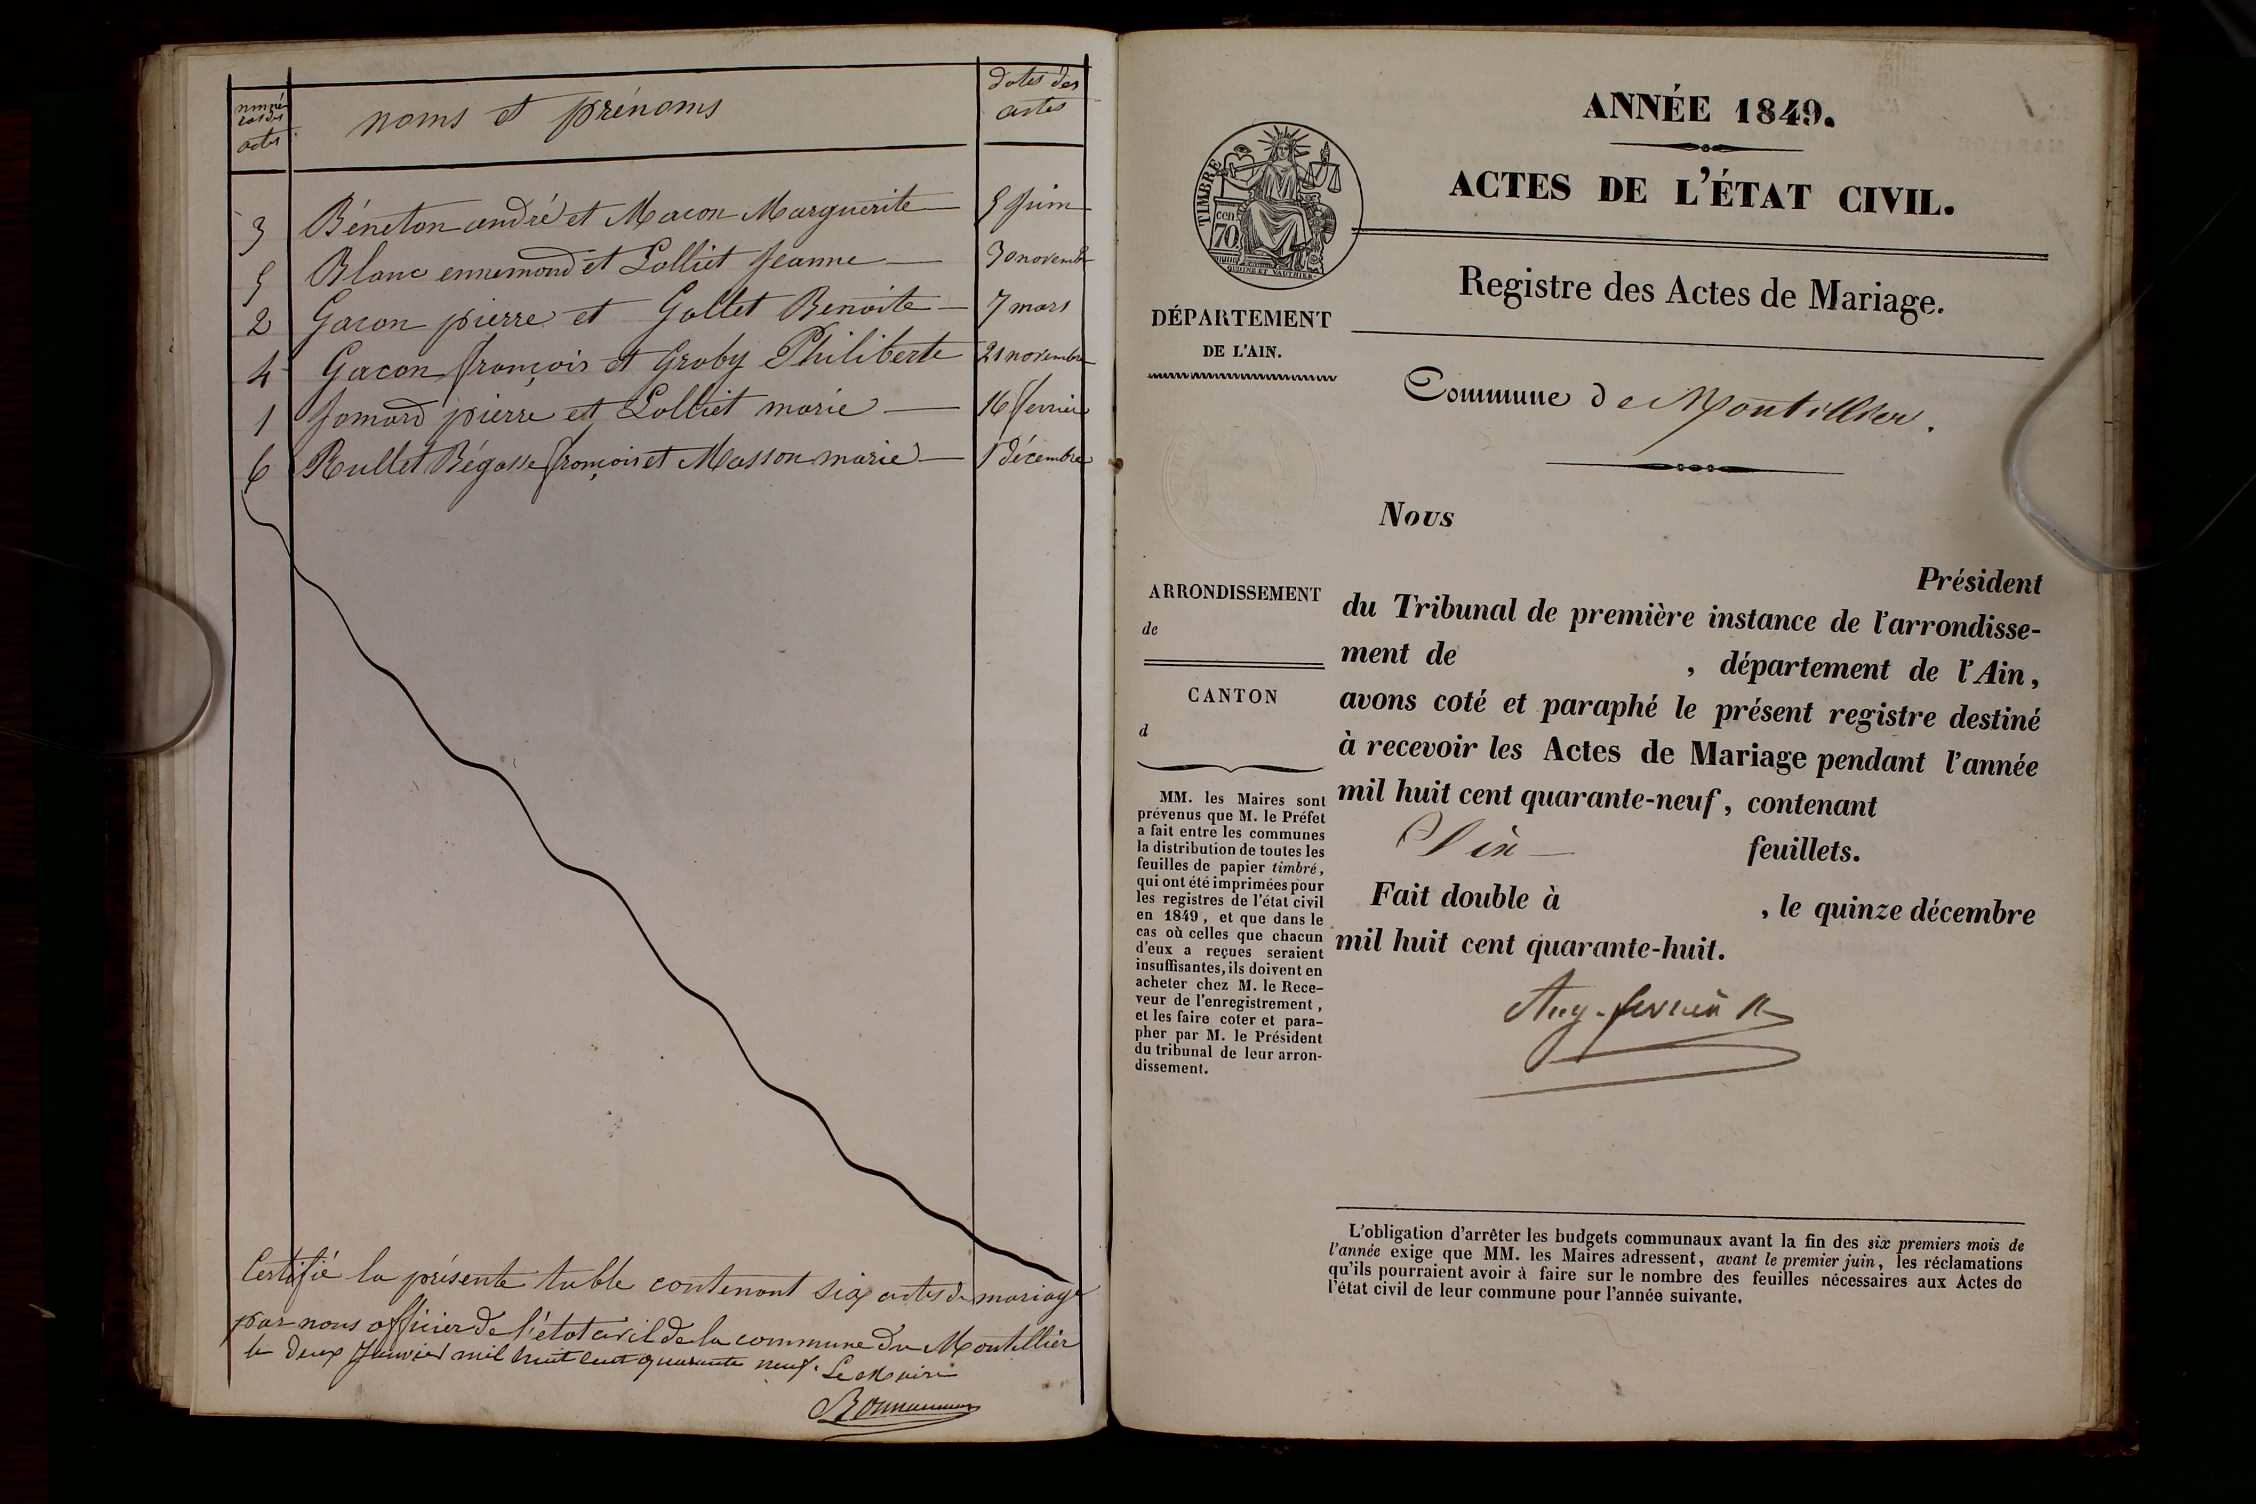 numé-
ros des
actes
noms et prénoms
dates des
actes
3 Béneton andré et Macon Marguerite 5 juin
5 Blanc ennemond et Lolliet Jeanne 30 novembre
2 Gacon pierre et Gollet Benoite 7 mars
4 Gacon françois et Groby Philiberte 21 novembre
1 Jomard pierre et Lolliet marie 16 fevrier
6 Rullet Bégasse françois et Masson marie 1 décembre
Certifié la présente table contenant six actes de mariage
par nous officier de l'état civil de la commune du Montellier
le deux Janvier mil huit cent quarante neuf. Le Maire
ANNÉE 1849.
ACTES DE L'ÉTAT CIVIL.
TIMBRE
cen
70
OUDINÉ ET VAUTHIER
Registre des Actes de Mariage.
DÉPARTEMENT
DE L'AIN.
Commune de Montillier.
Nous
Président
du Tribunal de première instance de l'arrondisse-
ment de , département de l'Ain,
avons coté et paraphé le présent registre destiné
à recevoir les Actes de Mariage pendant l'année
mil huit cent quarante-neuf, contenant
Dix feuillets.
Fait double à , le quinze décembre
mil huit cent quarante-huit.
ARRONDISSEMENT
de
CANTON
d
MM. les Maires sont
prévenus que M. le Préfet
a fait entre les communes
la distribution de toutes les
feuilles de papier timbré,
qui ont été imprimées pour
les registres de l'état civil
en 1849, et que dans le
cas où celles que chacun
d'eux a reçues seraient
insuffisantes, ils doivent en
acheter chez M. le Rece-
veur de l'enregistrement,
et les faire coter et para-
pher par M. le Président
du tribunal de leur arron-
dissement.
L'obligation d'arrêter les budgets communaux avant la fin des six premiers mois de
l'année exige que MM. les Maires adressent, avant le premier juin, les réclamations
qu'ils pourraient avoir à faire sur le nombre des feuilles nécessaires aux Actes de
l'état civil de leur commune pour l'année suivante.